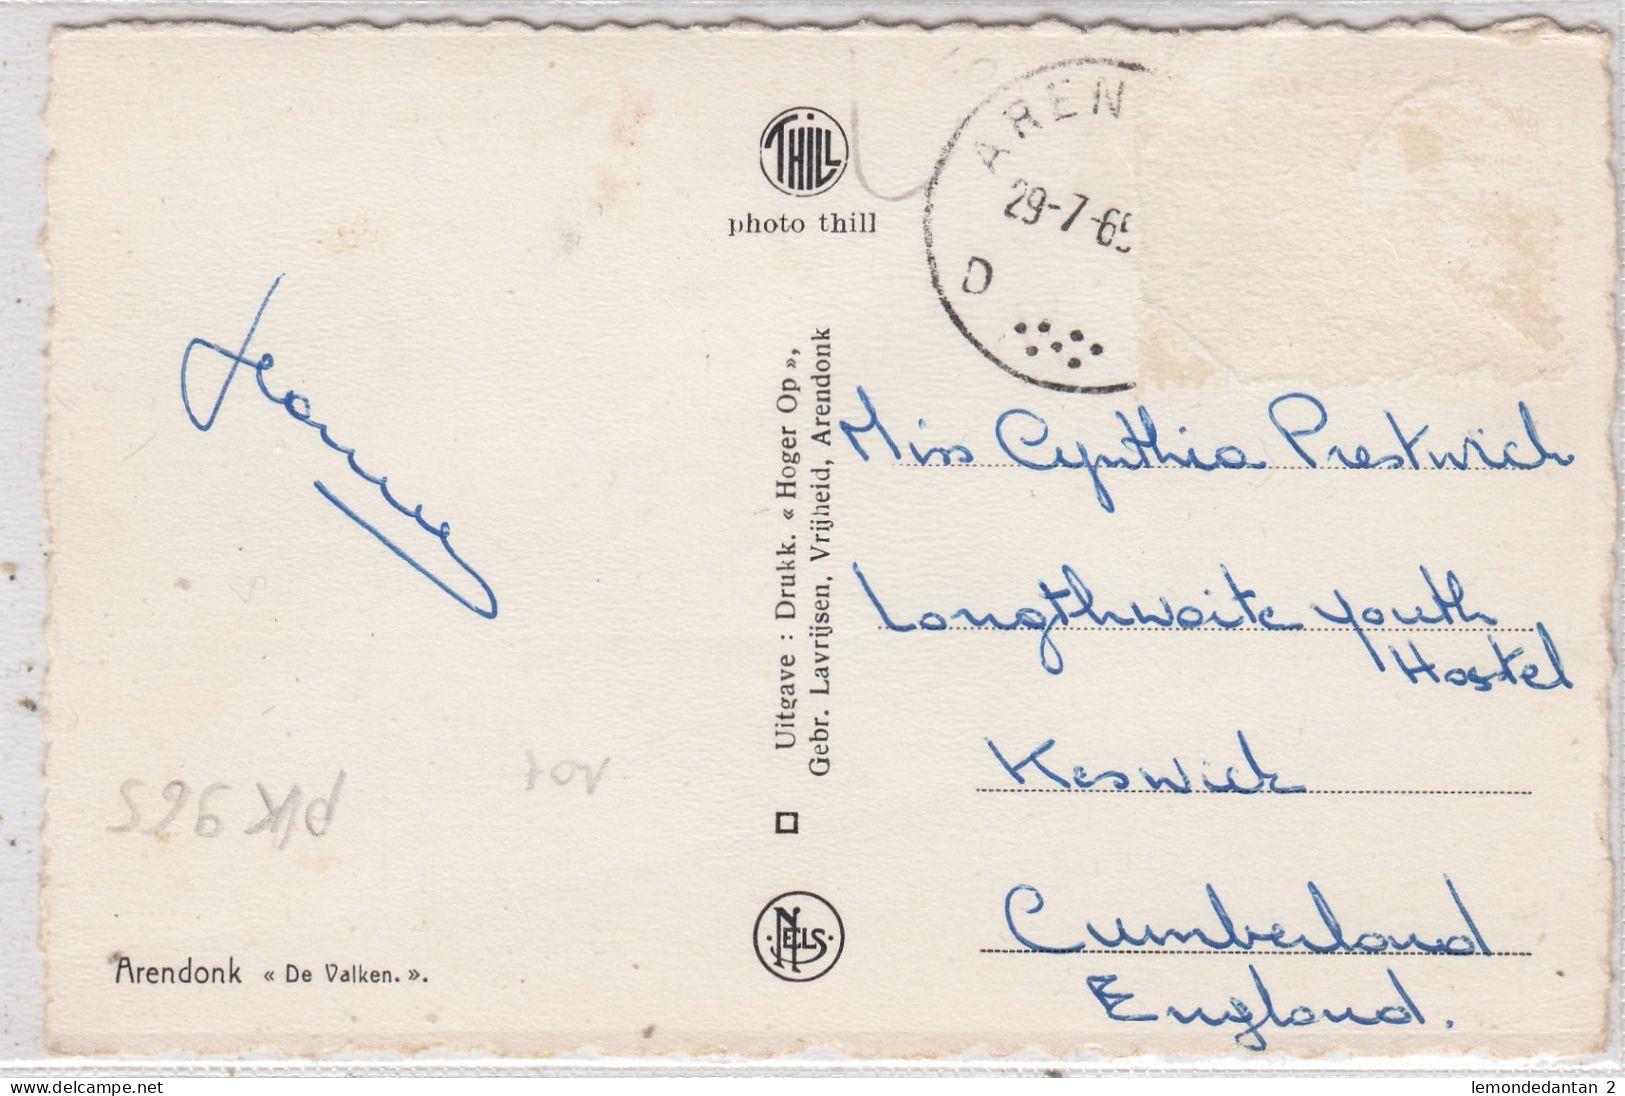 THILL
photo thill
AREN
29-7-65
D
Uitgave : Drukk. « Hoger Op »,
Gebr. Lavrijsen, Vrijheid, Arendonk
Miss Cynthia Prestwich
Longthwaite Youth
Hostel
Keswick
Cumberland
England.
101
P/K 965
NELS
Arendonk « De Valken. ».
lemondedantan 2